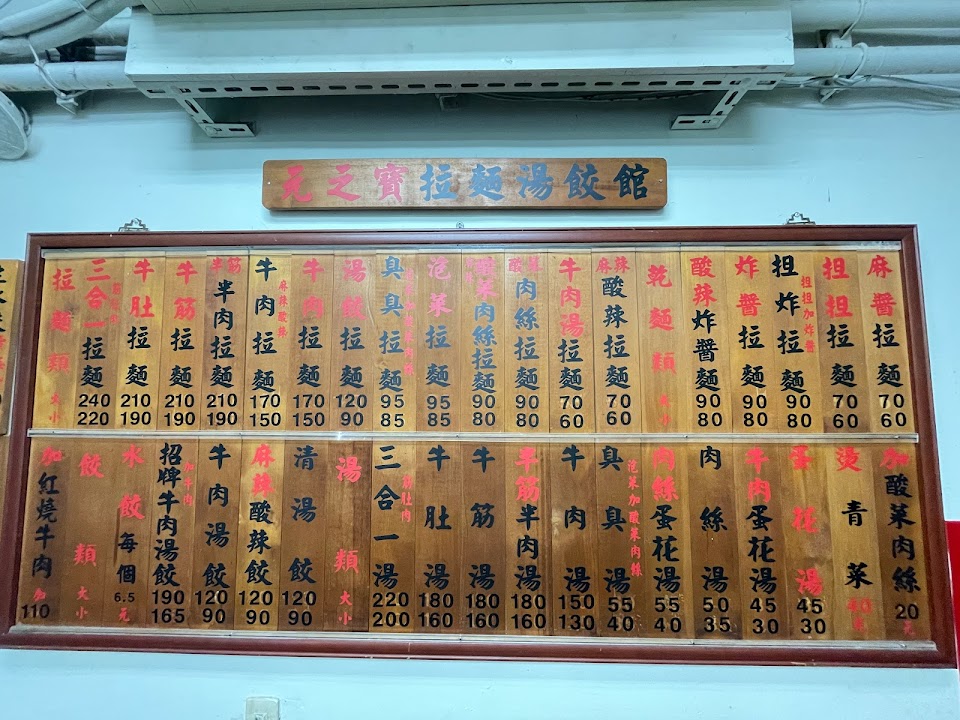 元之寶拉麵湯餃館
拉麵類 大 小
三合一拉麵 240 220
牛肚拉麵 210 190
牛筋拉麵 210 190
半筋半肉拉麵 210 190
牛肉拉麵 麻辣酸辣 170 150
牛肉拉麵 170 150
湯餃拉麵 120 90
臭臭拉麵 95 85
泡菜拉麵 95 85
酸菜肉絲拉麵 90 80
肉絲拉麵 90 80
牛肉湯拉麵 70 60
麻辣酸辣拉麵 70 60
乾麵類 大 小
酸辣炸醬 90 80
炸醬拉麵 90 80
担炸拉麵 担担加炸醬 90 80
担担拉麵 70 60
麻醬拉麵 70 60
加紅燒牛肉 加110
餃類 大 小
水餃 每個 6.5元
招牌牛肉湯餃 加牛肉 190 165
牛肉湯餃 120 90
麻辣酸辣餃 120 90
清湯餃 120 90
湯類 大 小
三合一湯 筋肚肉 220 200
牛肚湯 180 160
牛筋湯 180 160
半筋半肉湯 180 160
牛肉湯 150 130
臭臭湯 泡菜加酸菜肉絲 55 40
肉絲蛋花湯 55 40
肉絲湯 50 35
牛肉蛋花湯 45 30
蛋花湯 45 30
燙青菜 40元
加酸菜肉絲 20元